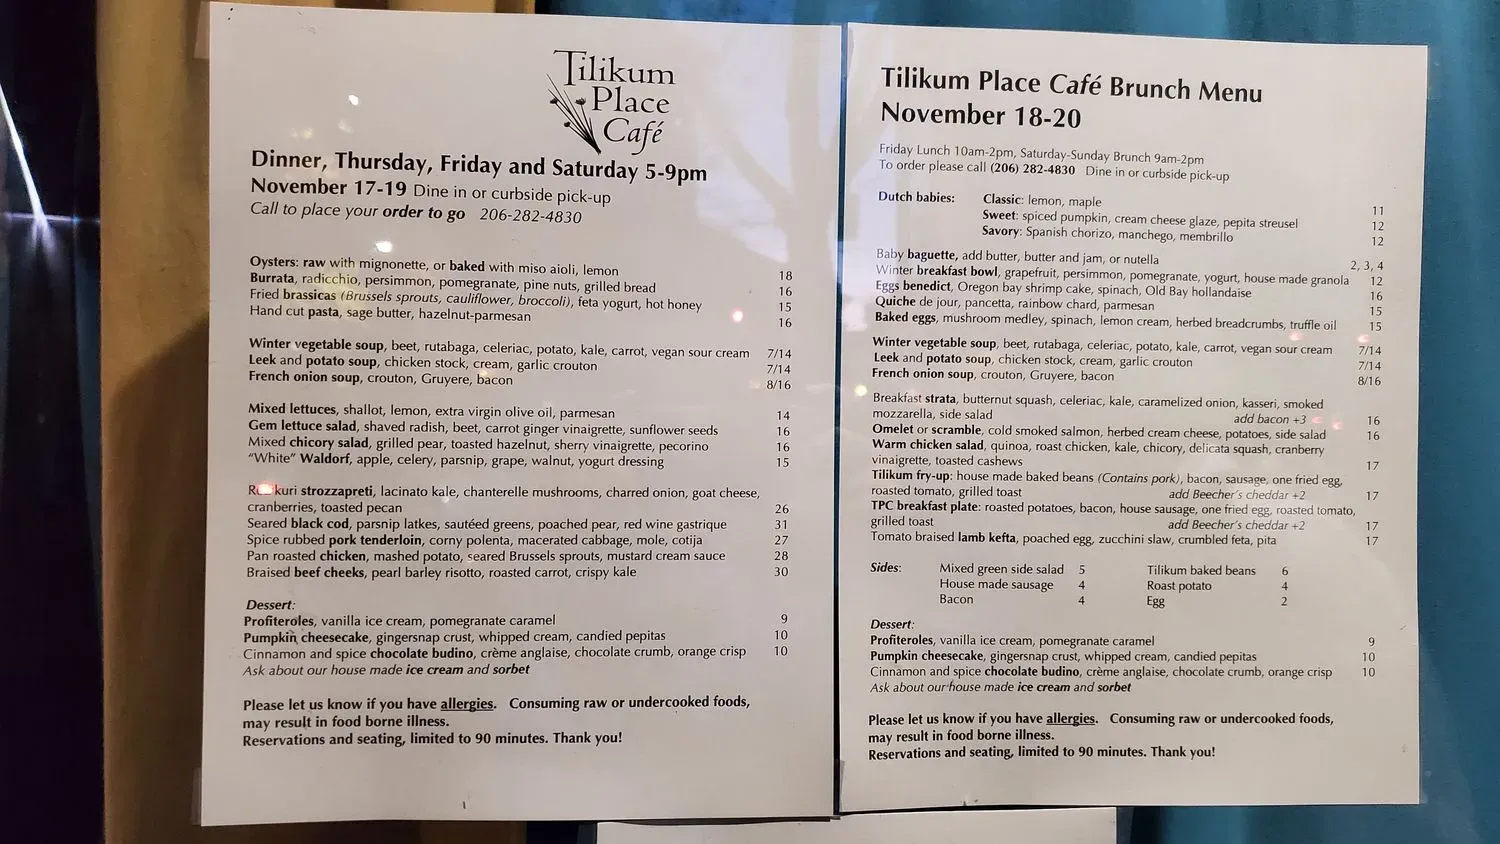 Tilikum
Place
Café
Dinner, Thursday, Friday and Saturday 5-9pm
November 17-19 Dine in or curbside pick-up
Call to place your order to go 206-282-4830
Oysters: raw with mignonette, or baked with miso aioli, lemon 18
Burrata, radicchio, persimmon, pomegranate, pine nuts, grilled bread 16
Fried brassicas (Brussels sprouts, cauliflower, broccoli), feta yogurt, hot honey 15
Hand cut pasta, sage butter, hazelnut-parmesan 16
Winter vegetable soup, beet, rutabaga, celeriac, potato, kale, carrot, vegan sour cream 7/14
Leek and potato soup, chicken stock, cream, garlic crouton 7/14
French onion soup, crouton, Gruyere, bacon 8/16
Mixed lettuces, shallot, lemon, extra virgin olive oil, parmesan 14
Gem lettuce salad, shaved radish, beet, carrot ginger vinaigrette, sunflower seeds 16
Mixed chicory salad, grilled pear, toasted hazelnut, sherry vinaigrette, pecorino 16
"White" Waldorf, apple, celery, parsnip, grape, walnut, yogurt dressing 15
strozzapreti, lacinato kale, chanterelle mushrooms, charred onion, goat cheese,
cranberries, toasted pecan 26
Seared black cod, parsnip latkes, sautéed greens, poached pear, red wine gastrique 31
Spice rubbed pork tenderloin, corny polenta, macerated cabbage, mole, cotija 27
Pan roasted chicken, mashed potato, seared Brussels sprouts, mustard cream sauce 28
Braised beef cheeks, pearl barley risotto, roasted carrot, crispy kale 30
Dessert:
Profiteroles, vanilla ice cream, pomegranate caramel 9
Pumpkin cheesecake, gingersnap crust, whipped cream, candied pepitas 10
Cinnamon and spice chocolate budino, crème anglaise, chocolate crumb, orange crisp 10
Ask about our house made ice cream and sorbet
Please let us know if you have allergies. Consuming raw or undercooked foods,
may result in food borne illness.
Reservations and seating, limited to 90 minutes. Thank you!
Tilikum Place Café Brunch Menu
November 18-20
Friday Lunch 10am-2pm, Saturday-Sunday Brunch 9am-2pm
To order please call (206) 282-4830 Dine in or curbside pick-up
Dutch babies: Classic: lemon, maple 11
Sweet: spiced pumpkin, cream cheese glaze, pepita streusel 12
Savory: Spanish chorizo, manchego, membrillo 12
Baby baguette, add butter, butter and jam, or nutella 2, 3, 4
Winter breakfast bowl, grapefruit, persimmon, pomegranate, yogurt, house made granola 12
Eggs benedict, Oregon bay shrimp cake, spinach, Old Bay hollandaise 16
Quiche de jour, pancetta, rainbow chard, parmesan 15
Baked eggs, mushroom medley, spinach, lemon cream, herbed breadcrumbs, truffle oil 15
Winter vegetable soup, beet, rutabaga, celeriac, potato, kale, carrot, vegan sour cream 7/14
Leek and potato soup, chicken stock, cream, garlic crouton 7/14
French onion soup, crouton, Gruyere, bacon 8/16
Breakfast strata, butternut squash, celeriac, kale, caramelized onion, kasseri, smoked
mozzarella, side salad add bacon +3 16
Omelet or scramble, cold smoked salmon, herbed cream cheese, potatoes, side salad 16
Warm chicken salad, quinoa, roast chicken, kale, chicory, delicata squash, cranberry
vinaigrette, toasted cashews 17
Tilikum fry-up: house made baked beans (Contains pork), bacon, sausage, one fried egg,
roasted tomato, grilled toast add Beecher's cheddar +2 17
TPC breakfast plate: roasted potatoes, bacon, house sausage, one fried egg, roasted tomato,
grilled toast add Beecher's cheddar +2 17
Tomato braised lamb kefta, poached egg, zucchini slaw, crumbled feta, pita 17
Sides: Mixed green side salad 5 Tilikum baked beans 6
House made sausage 4 Roast potato 4
Bacon 4 Egg 2
Dessert:
Profiteroles, vanilla ice cream, pomegranate caramel 9
Pumpkin cheesecake, gingersnap crust, whipped cream, candied pepitas 10
Cinnamon and spice chocolate budino, crème anglaise, chocolate crumb, orange crisp 10
Ask about our house made ice cream and sorbet
Please let us know if you have allergies. Consuming raw or undercooked foods,
may result in food borne illness.
Reservations and seating, limited to 90 minutes. Thank you!